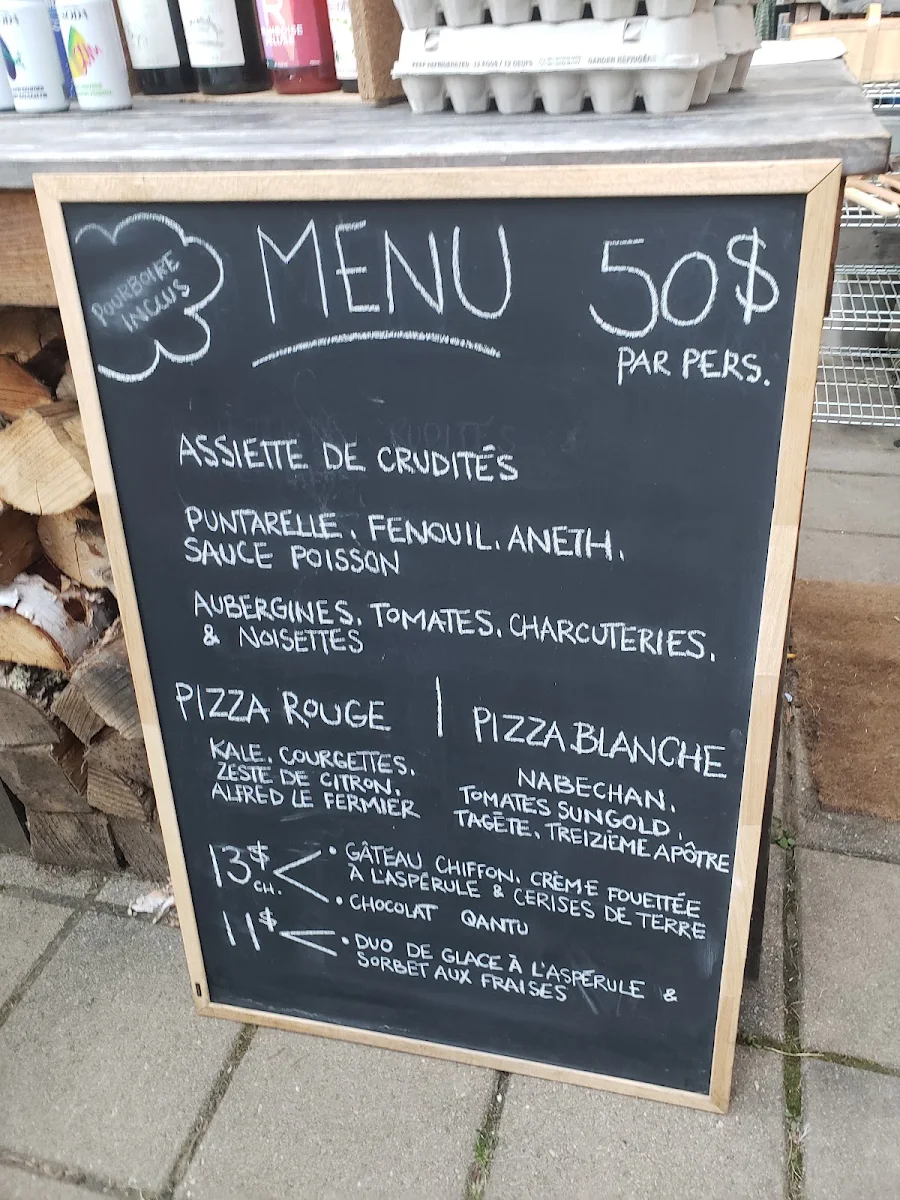 POURBOIRE
INCLUS
MENU
50$
PAR PERS.
ASSIETTE DE CRUDITÉS
PUNTARELLE, FENOUIL, ANETH,
SAUCE POISSON
AUBERGINES, TOMATES, CHARCUTERIES,
& NOISETTES
PIZZA ROUGE | PIZZA BLANCHE
KALE, COURGETTES,
ZESTE DE CITRON,
ALFRED LE FERMIER
NABECHAN,
TOMATES SUNGOLD,
TAGÈTE, TREIZIÈME APÔTRE
13$
CH.
• GÂTEAU CHIFFON, CRÈME FOUETTÉE
À L'ASPÉRULE & CERISES DE TERRE
• CHOCOLAT QANTU
11$
• DUO DE GLACE À L'ASPÉRULE &
SORBET AUX FRAISES